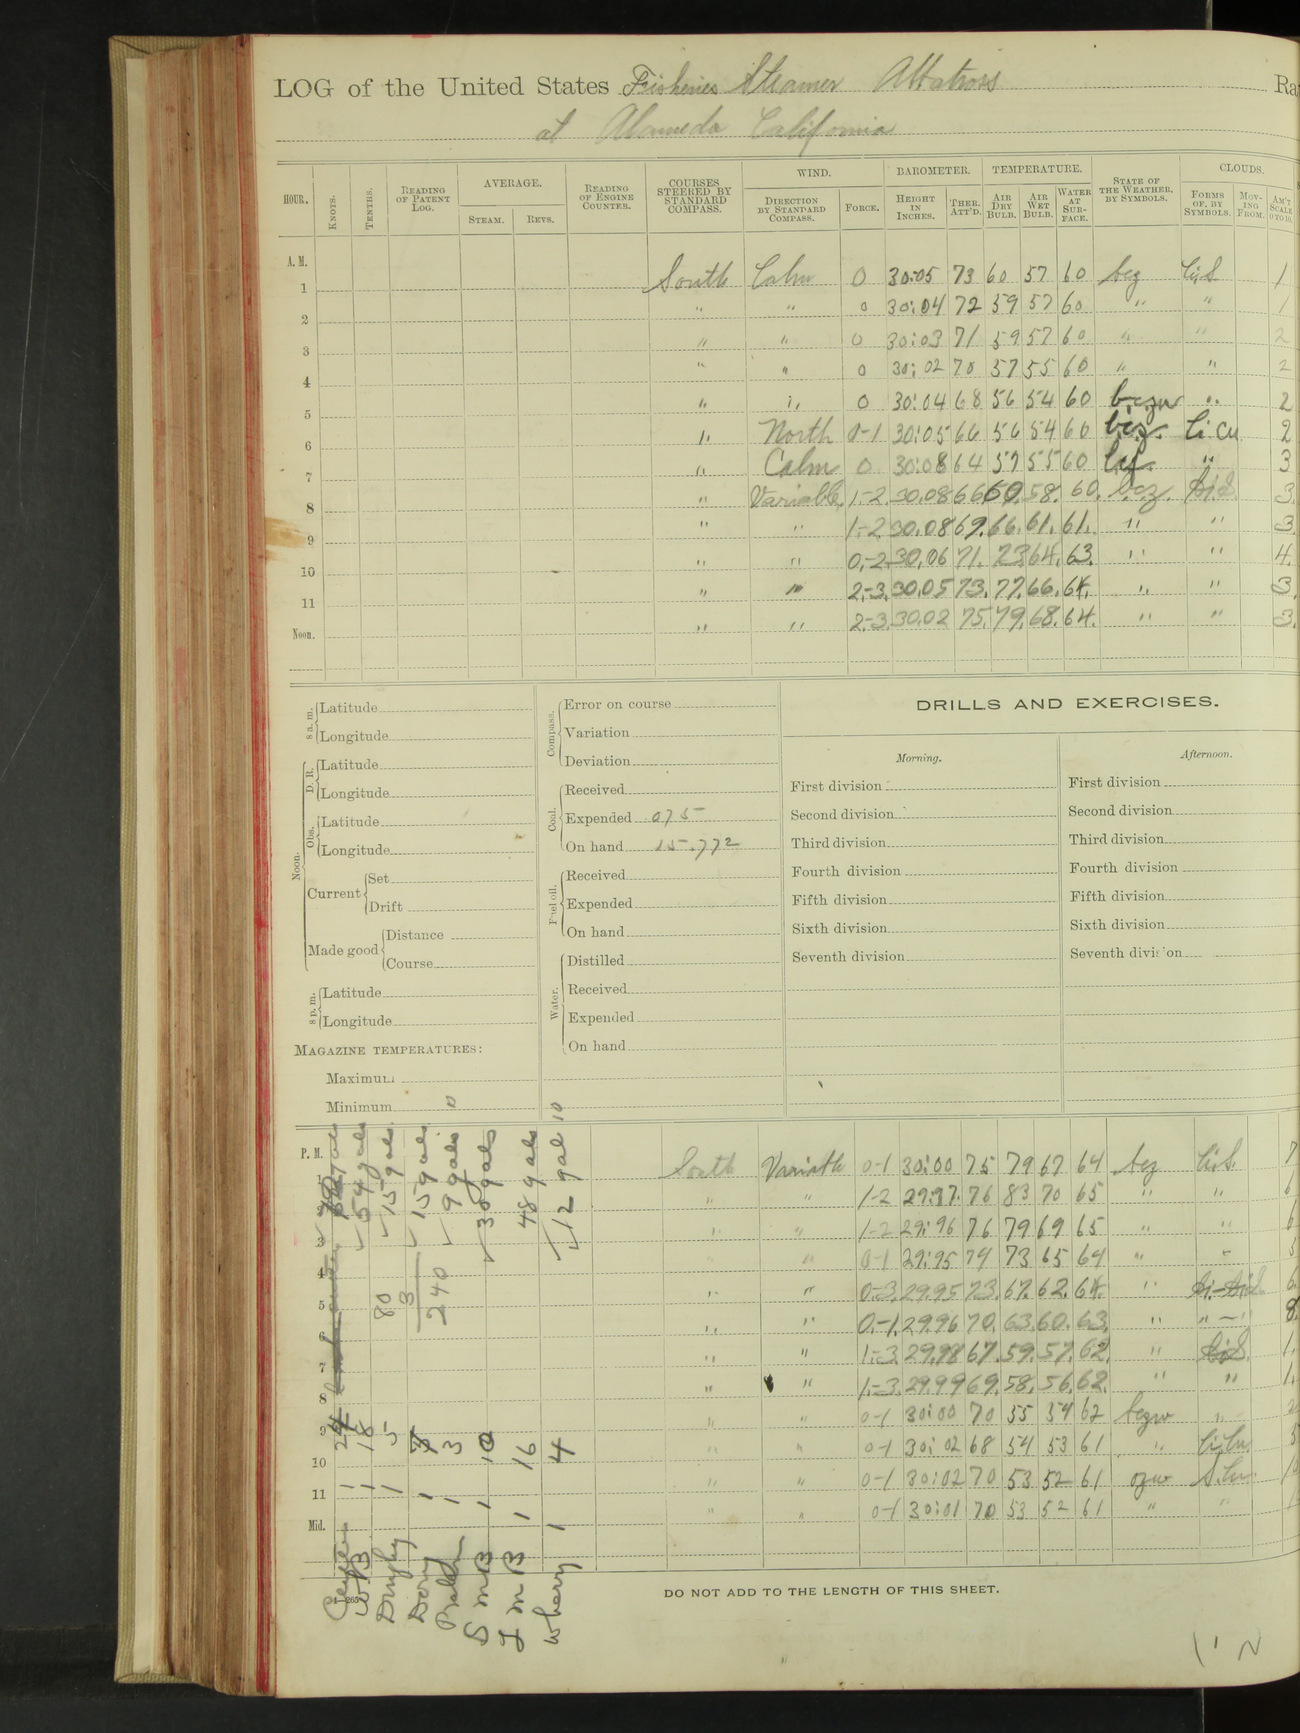 LOG of the United States Fisheries Steamer Albatross Ra
at Alameda California
HOUR. KNOTS. TENTHS. READING OF PATENT LOG. AVERAGE. STEAM. REVS. READING OF ENGINE COUNTER. COURSES STEERED BY STANDARD COMPASS. WIND. DIRECTION BY STANDARD COMPASS. FORCE. BAROMETER. HEIGHT IN INCHES. THER. ATT'D. TEMPERATURE. AIR DRY BULB. AIR WET BULB. WATER AT SURFACE. STATE OF THE WEATHER, BY SYMBOLS. CLOUDS. FORMS OF, BY SYMBOLS. MOVING FROM. AM'T SCALE 0 TO 10.
A. M.
1 South Calm 0 30:05 73 60 57 60 bcz Ci.S 1
2 " " 0 30:04 72 59 57 60 " " 1
3 " " 0 30:03 71 59 57 60 " " 2
4 " " 0 30:02 70 57 55 60 " " 2
5 " " 0 30:04 68 56 54 60 bczw " 2
6 " North 0-1 30:05 66 56 54 60 bcz. Ci Cu 2
7 " Calm 0 30:08 64 57 55 60 " 3
8 " Variable 1-2 30.08 66 60. 58. 60. bcz. Ci.S. 3.
9 " " 1-2 30.08 69. 66. 61. 61. " " 3.
10 " " 0-2 30.06 71. 73. 64. 63. " " 4.
11 " " 2-3. 30.05 73. 77. 66. 64. " " 3.
Noon. " " 2-3. 30.02 75. 79. 68. 64. " " 3.
8 a. m. Latitude
Longitude
Noon. D. R. Latitude
Longitude
Obs. Latitude
Longitude
Current Set
Drift
Made good Distance
Course
8 p. m. Latitude
Longitude
MAGAZINE TEMPERATURES:
Maximum
Minimum
Compass. Error on course
Variation
Deviation
Coal. Received
Expended 075
On hand 15.772
Fuel oil. Received
Expended
On hand
Water. Distilled
Received
Expended
On hand
DRILLS AND EXERCISES.
Morning. Afternoon.
First division First division
Second division Second division
Third division Third division
Fourth division Fourth division
Fifth division Fifth division
Sixth division Sixth division
Seventh division Seventh division
P. M.
1 South Variable 0-1 30:00 75 79 67 64 bcz Ci.S. 7
2 " " 1-2 29:97 76 83 70 65 " " 6
3 " " 1-2 29:96 76 79 69 65 " " 6
4 " " 0-1 29:95 74 73 65 64 " "
5 " " 0-3. 29.95 73. 67. 62. 64. " 6.
6 " " 0-1. 29.96 70. 63. 60. 63. " " - " 8.
7 " " 1-3. 29.98 67. 59. 57. 62. " Ci.S. 1.
8 " " 1-3. 29.99 69. 58. 56. 62. " " 1.
9 " " 0-1 30:00 70 55 54 62 bczw "
10 " " 0-1 30:02 68 54 53 61 " Ci.Cu. 5
11 " " 0-1 30:02 70 53 52 61 ozw S.Cu. 10
Mid. " " 0-1 30:01 70 53 52 61 " "
Cutter 1 24
W B 1 18 54 gals
Dinghy 1 5 15 gals
Dory 1 15 gals
1 3 9 gals
S m B 1 10 30 gals
L m B 1 16 48 gals
Wherry 1 4 12 gal
80
3
240
DO NOT ADD TO THE LENGTH OF THIS SHEET.